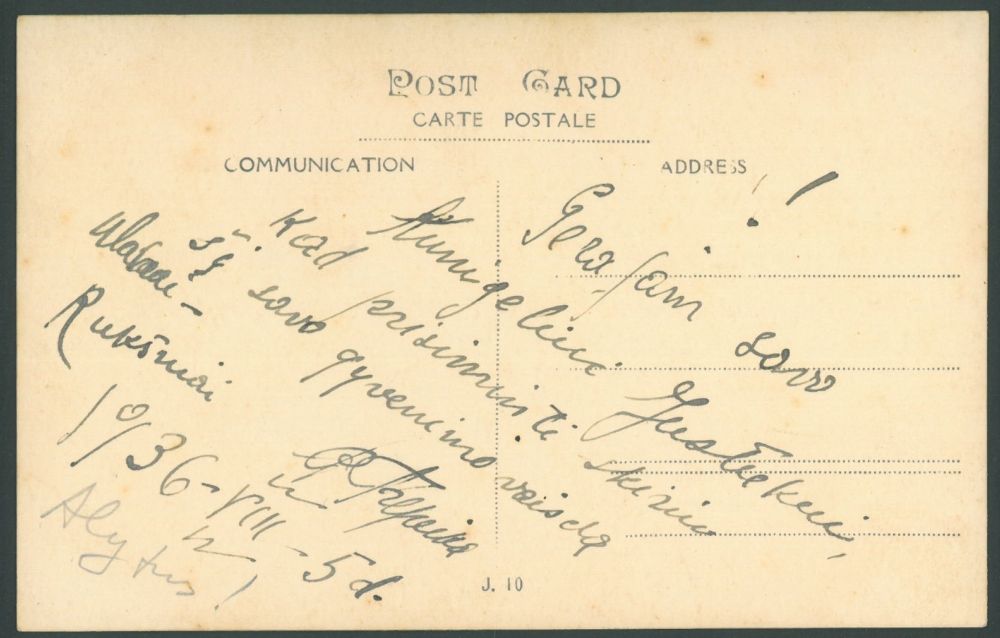 POST CARD
CARTE POSTALE
COMMUNICATION
ADDRESS
Gerajam savo
Kunigeliui Justekui,
Kad prisiminti skiriu
šį savo gyvenimo vaizdą
Rukšniai
1936-VIII-5 d.
Alytus!
J. 10